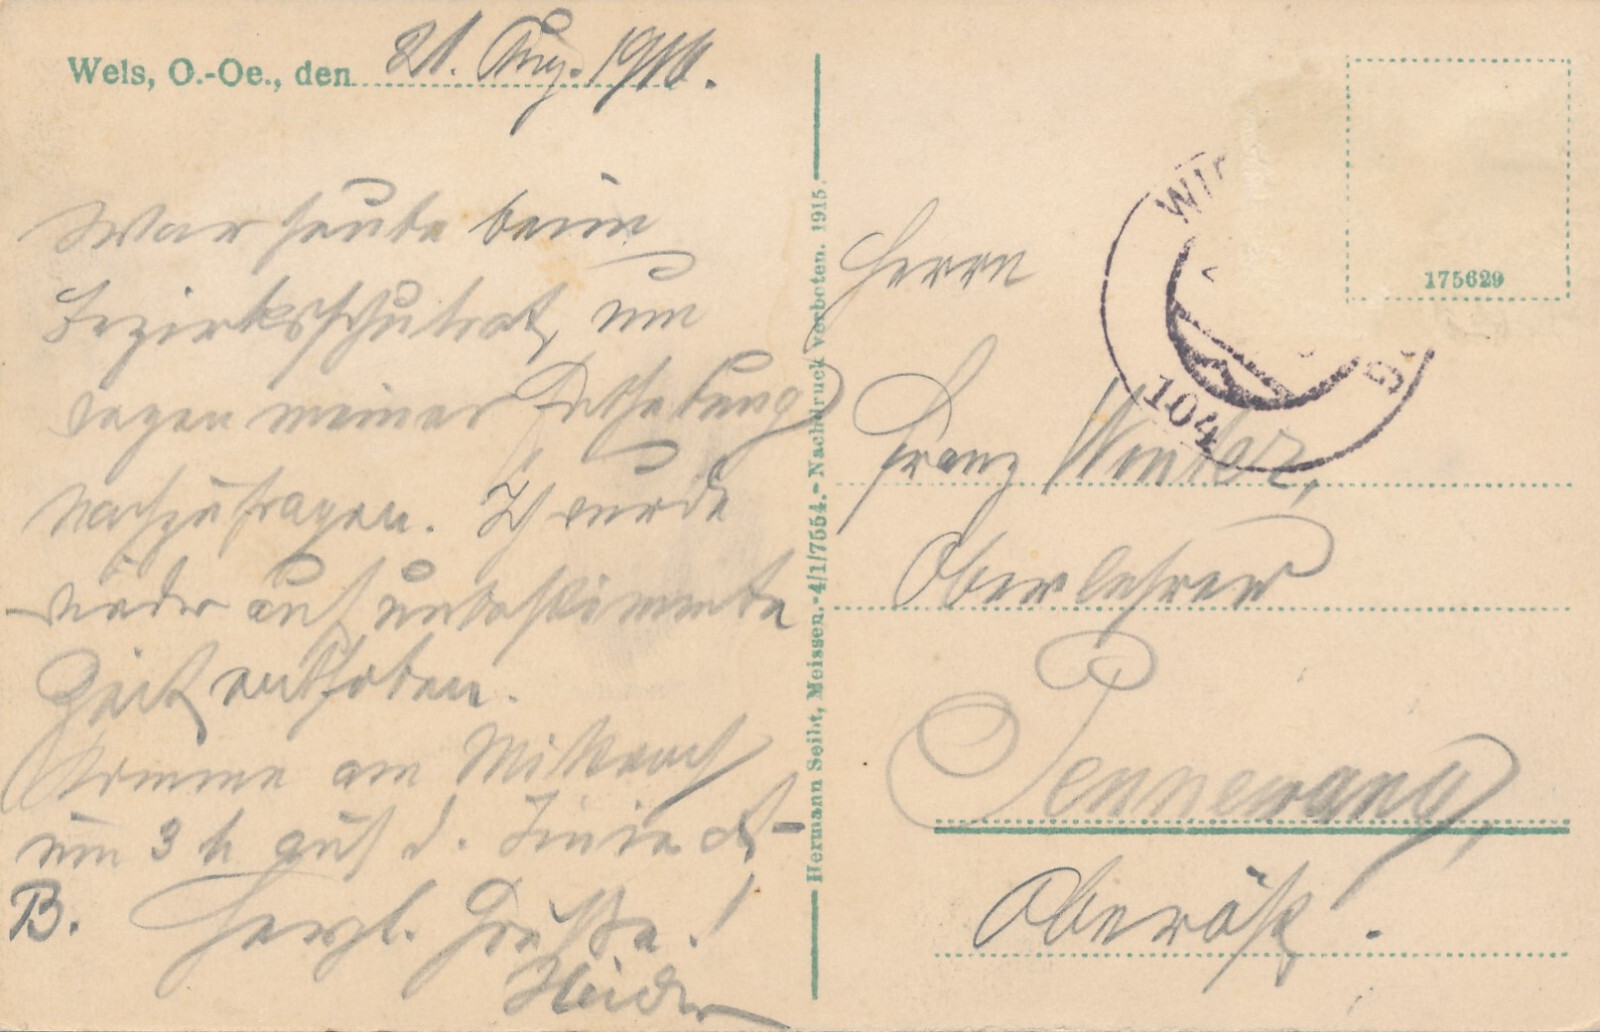 Wels, O.-Oe., den 21. Aug. 1916.
War heute beim
Bezirksschulrat, um
wegen meiner Enthebung
nachzufragen. Ich wurde
wieder auf unbestimmte
Zeit enthoben.
Komme am Mittwoch
um 3 h auf d. Linie
B. Herzl. Grüße!
Hermann Seibt, Meissen. - 4/1/7554. - Nachdruck verboten. 1915.
175629
104
Herrn
Franz Winter,
Oberlehrer
Pennewang,
Oberöst.